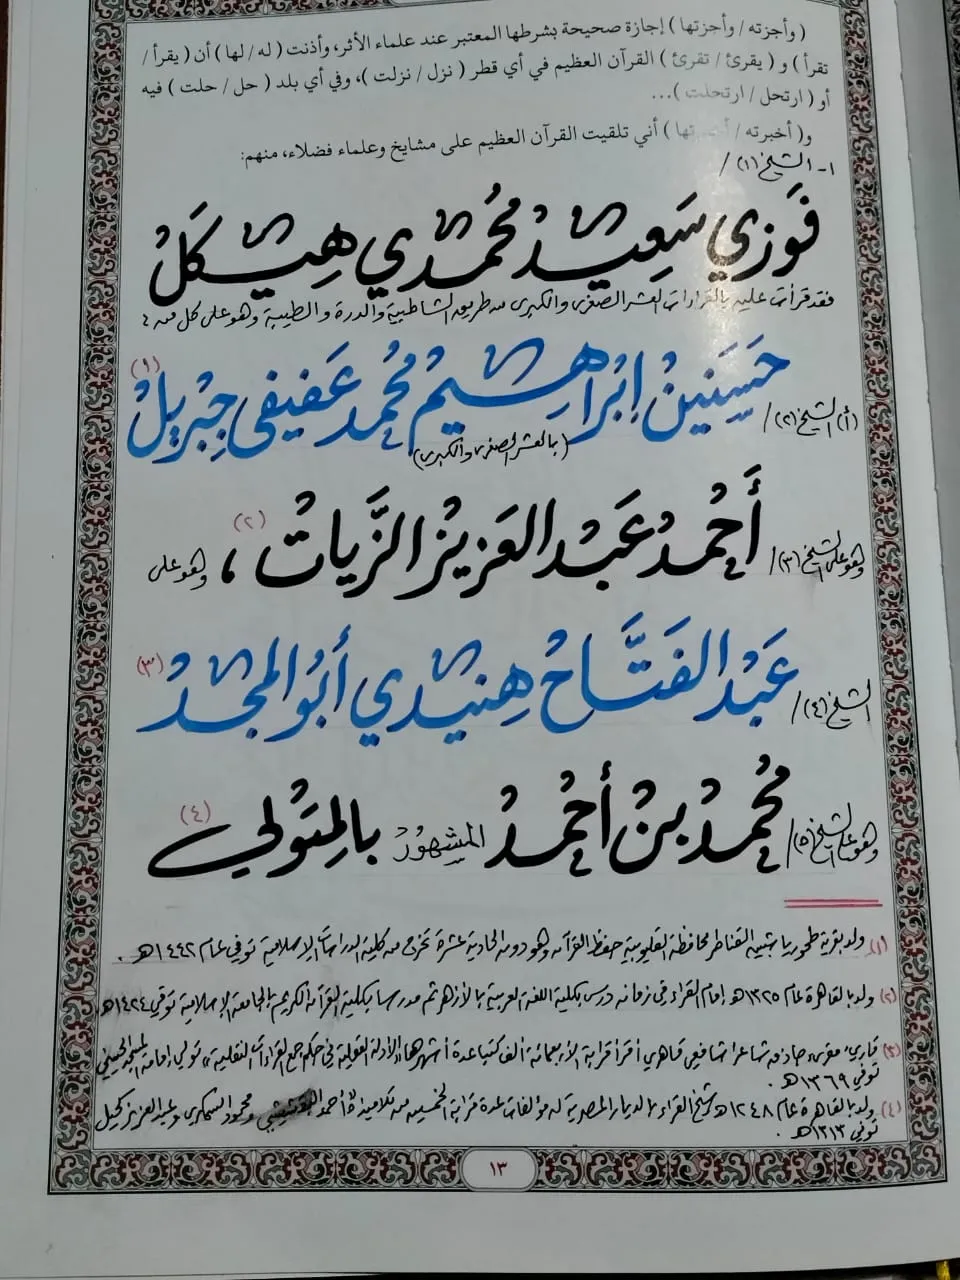 ( وأجزته / وأجزتها ) إجازة صحيحة بشرطها المعتبر عند علماء الأثر، وأذنت ( له / لها ) أن ( يقرأ /
تقرأ ) و ( يقرئ / تقرئ ) القرآن العظيم في أي قطر ( نزل / نزلت )، وفي أي بلد ( حل / حلت ) فيه
أو ( ارتحل / ارتحلت )...
و( أخبرته / أخبرتها ) أني تلقيت القرآن العظيم على مشايخ وعلماء فضلاء، منهم:
١- الشيخ (١) /
فَوزي سَعِيد مُحمدي هِيكَل
فقد قرأت عليه بالقراءات العشر الصغرى والكبرى من طريق الشاطبية والدرة والطيبة وهو على كل من :
(أ) الشيخ (٢) / حَسَنِين إبْرَاهِيم مُحمد عَفيفى جِبْريل (١)
(بالعشر الصغرى والكبرى)
وهو على الشيخ (٣) / أَحْمد عَبْد العَزيز الزَّيات (٢) ، وهو على
الشيخ (٤) / عَبْد الفَتَّاح هِنيدي أَبُو المجْد (٣)
وهو على الشيخ (٥) / مُحمد بن أحْمد المشهُور بالمتَولي (٤)
(١) ولد بقرية طحوريا شبين القناطر محافظة القليوبية حفظ القرآن وهو دون الحادية عشرة تخرج من كلية الدراسات الإسلامية توفي عام ١٤٤٢هـ .
(٢) ولد بالقاهرة عام ١٣٢٥هـ إمام القراء في زمانه درس بكلية اللغة العربية بالأزهر ثم مدرسا بكلية القرآن الكريم بالجامعة الإسلامية توفى ١٤٢٤هـ
(٣) قارئ، مقرئ، حاذق شاعر شافعي قاهري أقرأ قرابة الأربعمائة ألف كتبا عدة أشهرها الأدلة العقلية في حكم جمع القراءات النقلية، تولي إمامة المسجد الحسيني
توفي ١٣٦٩هـ .
(٤) ولد بالقاهرة عام ١٢٤٨هـ شيخ القراء بالديار المصرية له مؤلفات عدة قرابة الخمسين من تلاميذه أحمد ومحمود السمكري وعبد العزيز كحيل
توفي ١٣١٣هـ .
١٣